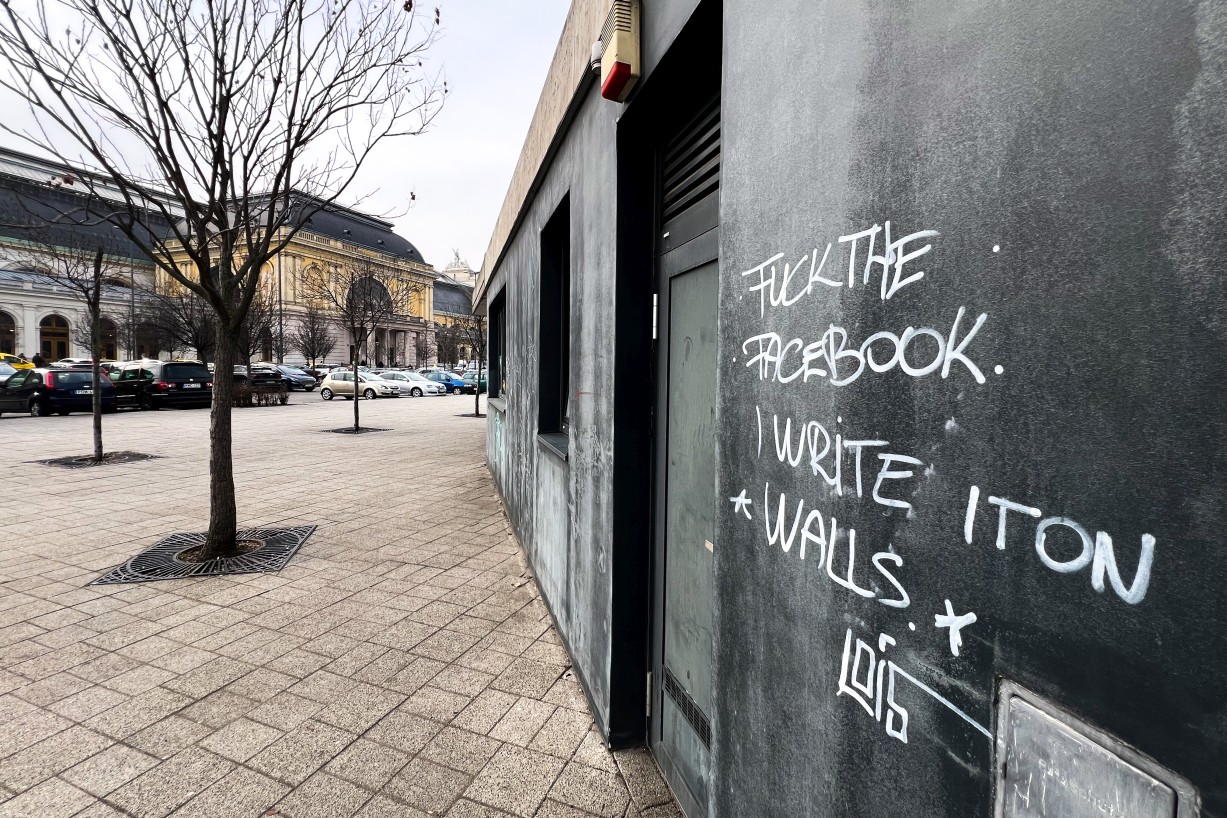 FUCK THE
FACEBOOK.
I WRITE IT ON
* WALLS. *
LOIS